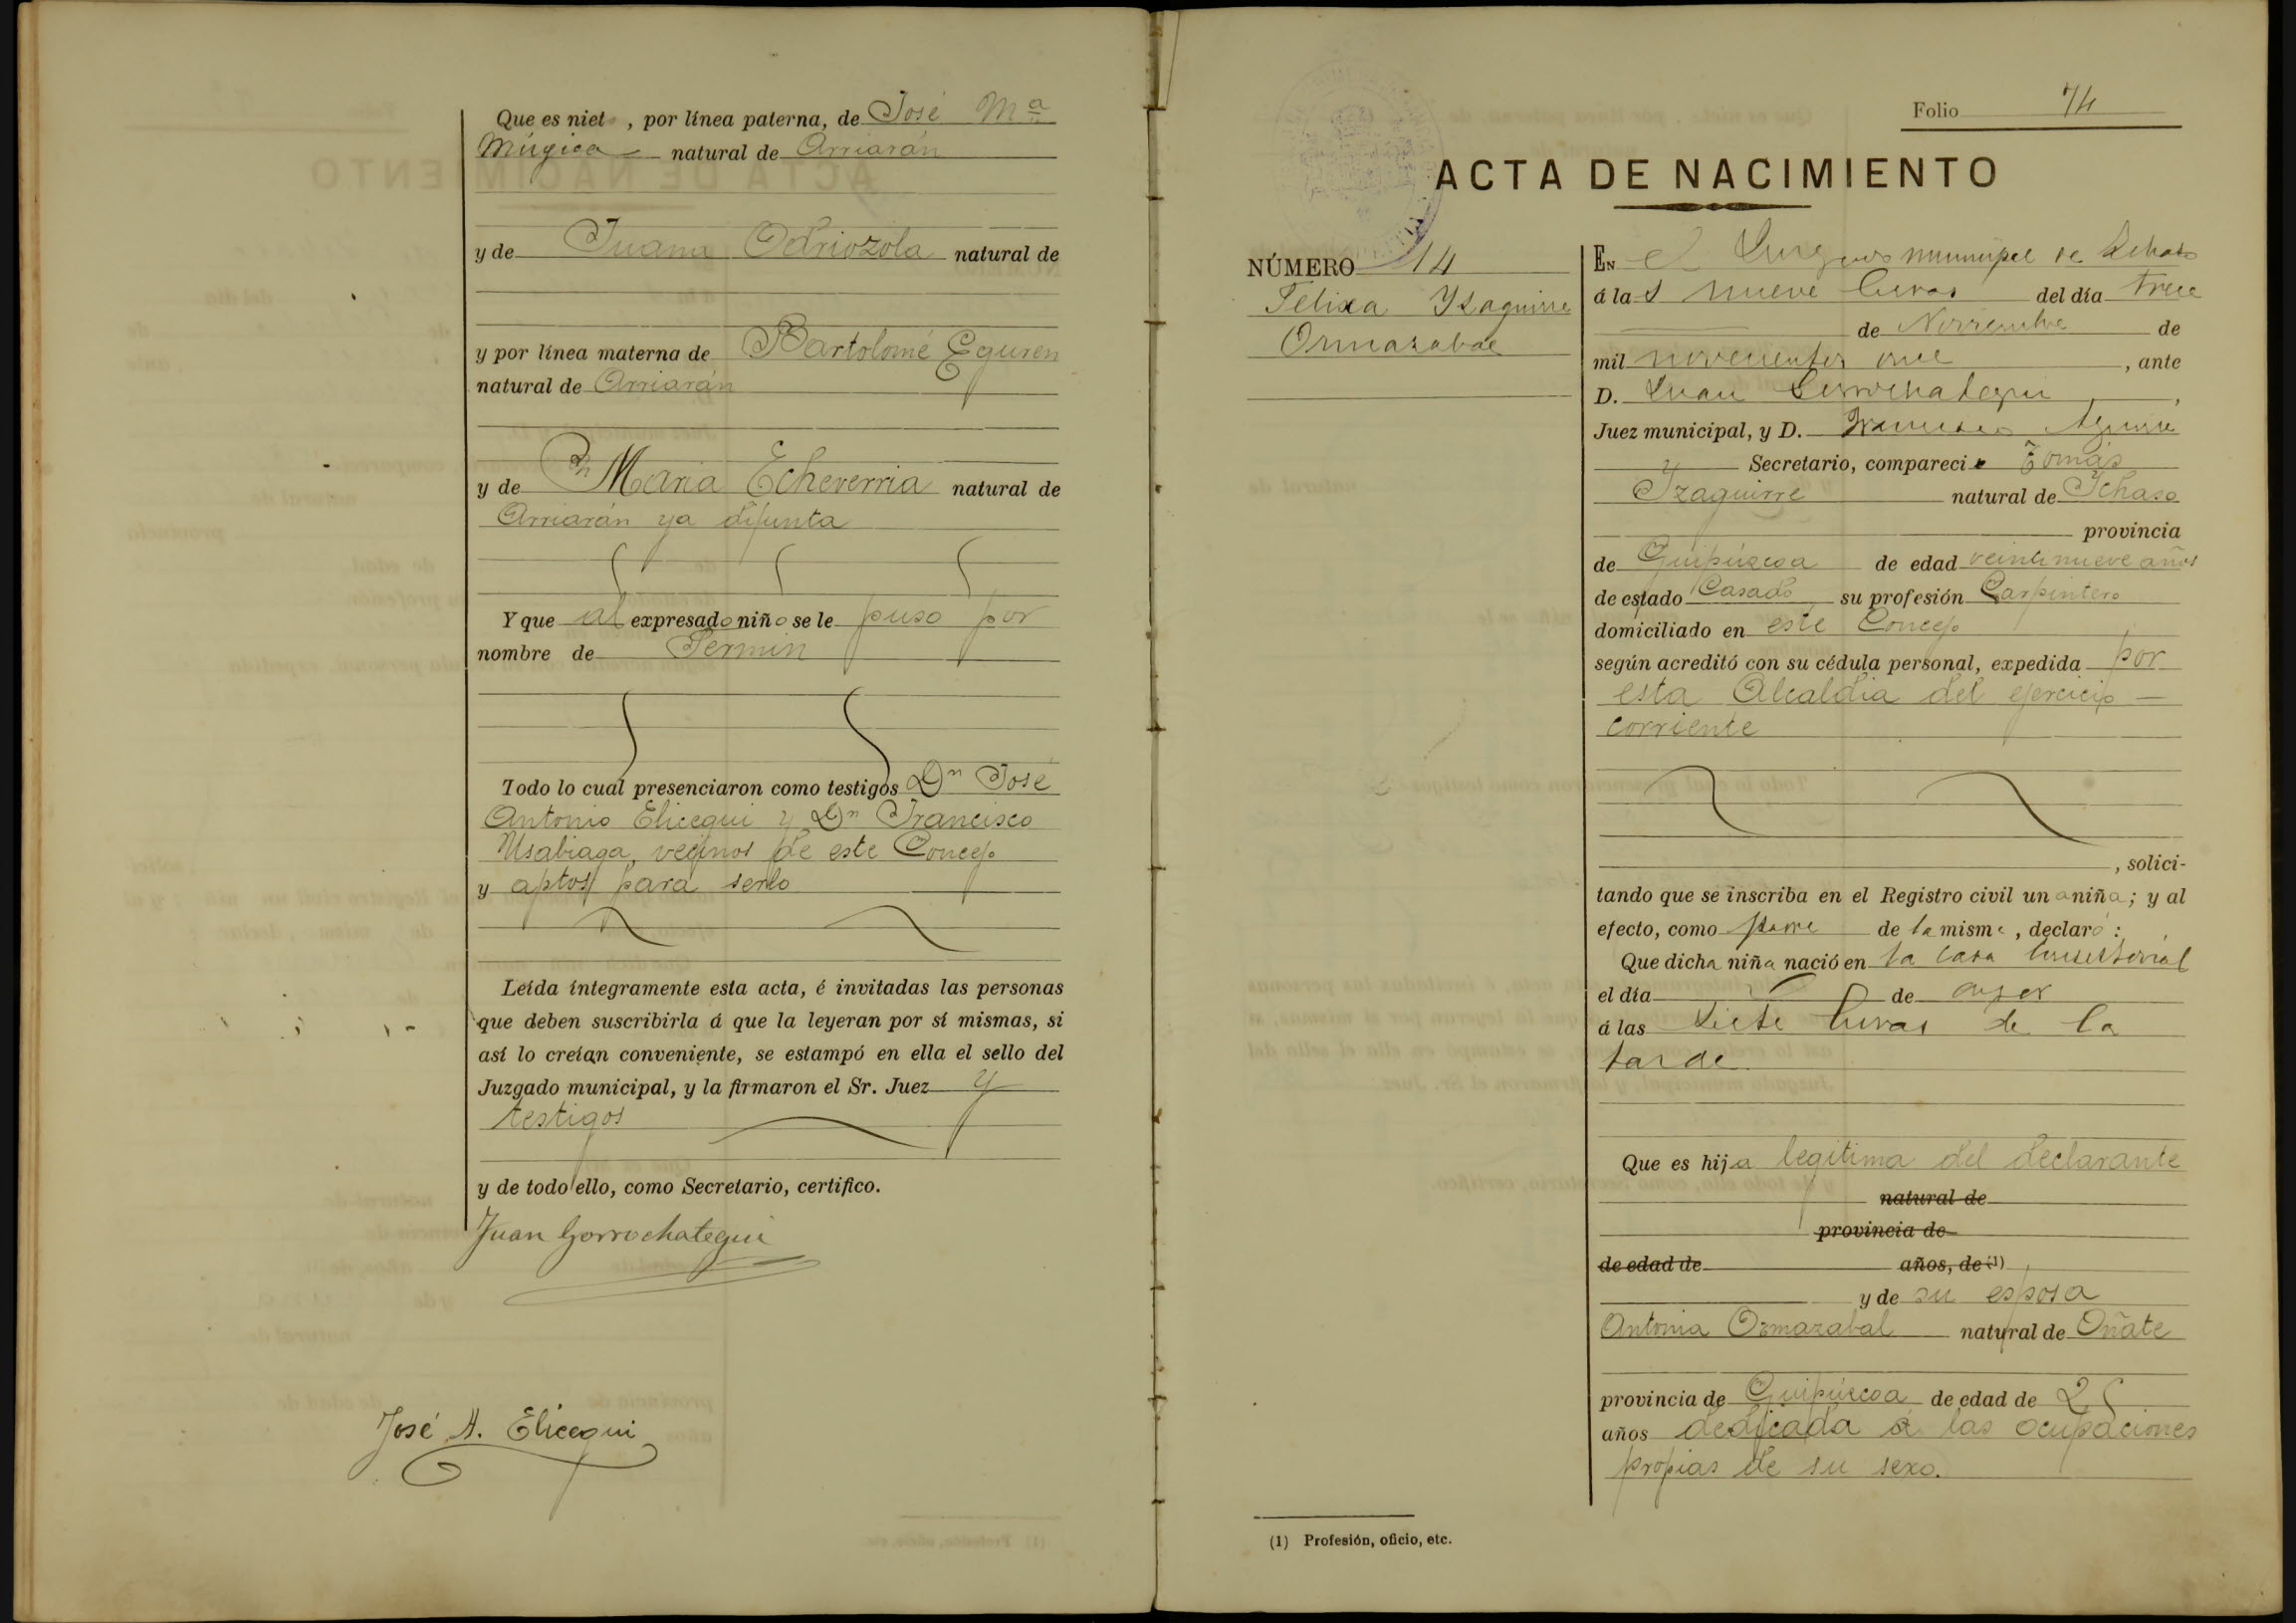 Que es niet , por línea paterna, de José Mª
Múgica natural de Arriarán
y de Juana Odriozola natural de
y por línea materna de Bartolomé Eguren
natural de Arriarán
y de Maria Echeverria natural de
Arriarán ya difunta
Y que al expresado niño se le puso por
nombre de Fermin
Todo lo cual presenciaron como testigos Dn José
Antonio Elicegui y Dn Francisco
Usabiaga, vecinos de este Concejo
y aptos para serlo
Leída íntegramente esta acta, é invitadas las personas
que deben suscribirla á que la leyeran por sí mismas, si
así lo creían conveniente, se estampó en ella el sello del
Juzgado municipal, y la firmaron el Sr. Juez y
testigos
y de todo ello, como Secretario, certifico.
Juan Gorrochategui
José A. Elicegui
Folio 74
ACTA DE NACIMIENTO
NÚMERO 14
Felixa Yzaguirre
Ormazabal
En el Juzgado municipal de Ichaso
á las nueve horas del día trece
de Noviembre de
mil novecientos once , ante
D. Juan Gorrochategui ,
Juez municipal, y D. Francisco Aguirre
y Secretario, compareció Tomás
Izaguirre natural de Ichaso
provincia
de Guipúzcoa de edad veintinueve años
de estado Casado su profesión Carpintero
domiciliado en este Concejo
según acreditó con su cédula personal, expedida por
esta Alcaldia del ejercicio —
corriente
, solici-
tando que se inscriba en el Registro civil una niña; y al
efecto, como padre de la misma , declaró :
Que dicha niña nació en la casa Consistorial
el día de ayer
á las siete horas de la
tarde
Que es hija legitima del declarante
natural de
provincia de
de edad de años, de (1)
y de su esposa
Antonia Ormazabal natural de Oñate
provincia de Guipúzcoa de edad de 25
años dedicada á las ocupaciones
propias de su sexo.
(1) Profesión, oficio, etc.